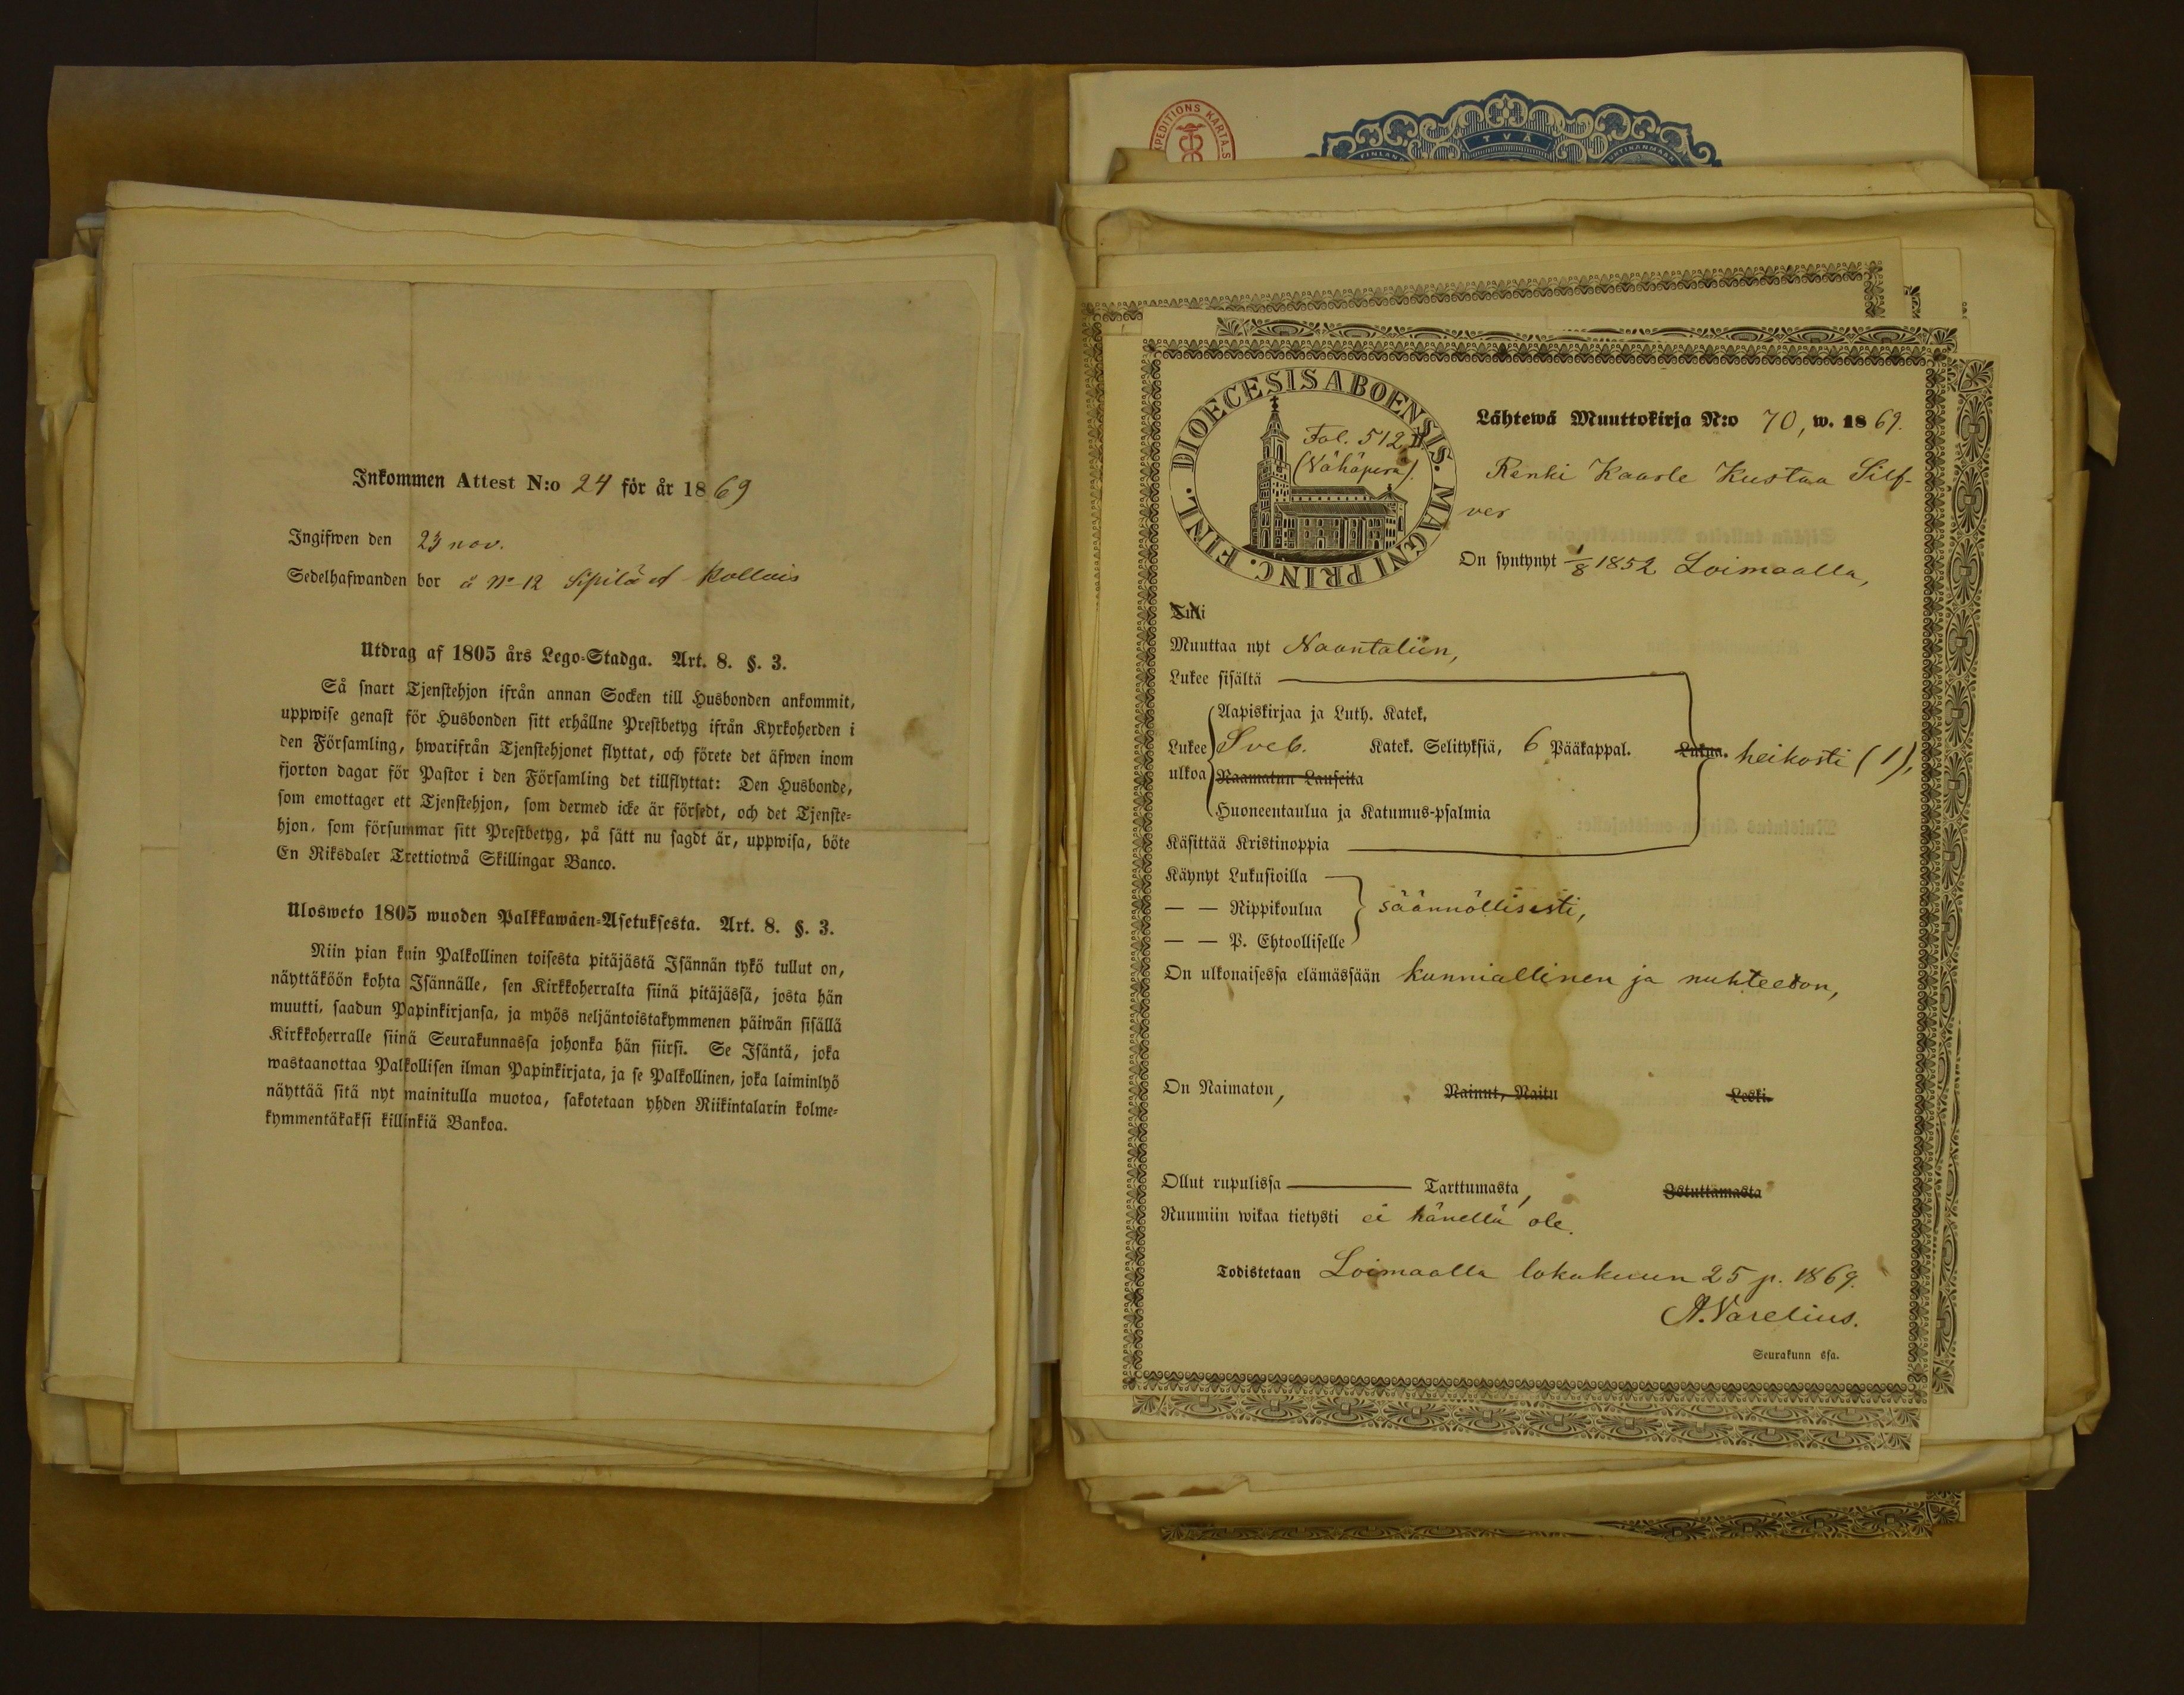 Inkommen Attest N:o 24 för år 1869
Ingifwen den 23 nov.
Sedelhafwanden bor å No 12 Sipilä af Kollois
Utdrag af 1805 års Lego-Stadga. Art. 8. §. 3.
Så snart Tjenstehjon ifrån annan Socken till Husbonden ankommit,
uppwise genast för Husbonden sitt erhållne Prestbetyg ifrån Kyrkoherden i
den Församling, hwarifrån Tjenstehjonet flyttat, och förete det äfwen inom
fjorton dagar för Pastor i den Församling det tillflyttat: Den Husbonde,
som emottager ett Tjenstehjon, som dermed icke är försedt, och det Tjenste-
hjon, som försummar sitt Prestbetyg, på sätt nu sagdt är, uppwisa, böte
En Riksdaler Trettiotwå Skillingar Banco.
Ulosweto 1805 wuoden Palkkawäen-Asetuksesta. Art. 8. §. 3.
Niin pian kuin Palkollinen toisesta pitäjästä Isännän tykö tullut on,
näyttäköön kohta Isännälle, sen Kirkkoherralta siinä pitäjässä, josta hän
muutti, saadun Papinkirjansa, ja myös neljäntoistakymmenen päiwän sisällä
Kirkkoherralle siinä Seurakunnassa johonka hän siirsi. Se Isäntä, joka
wastaanottaa Palkollisen ilman Papinkirjata, ja se Palkollinen, joka laiminlyö
näyttää sitä nyt mainitulla muotoa, sakotetaan yhden Riikintalarin kolme-
kymmentäkaksi killinkiä Bankoa.
EXPEDITIONS KARTA. S
TVÅ
FINLAN
NTINANMAAN
FINL. DIOECESIS ABOENSIS. MAGNI PRINC.
Fol. 512 II
(Vähäpera).
Lähtewä Muuttokirja N:o 70, w. 1869.
Renki Kaarle Kustaa Silf-
ver
On syntynyt 1/8 1852 Loimaalla,
Tuli
Muuttaa nyt Naantaliin,
Lukee sisältä
Aapiskirjaa ja Luth. Katek.
Lukee Sveb. Katek. Selityksiä, 6 Pääkappal. Lukua. heikosti (1),
ulkoa Raamatun Lauseita
Huoneentaulua ja Katumus-psalmia
Käsittää Kristinoppia
Käynyt Lukusioilla
— — Rippikoulua säännöllisesti,
— — P. Ehtoolliselle
On ulkonaisessa elämässään kunniallinen ja nuhteeton,
On Naimaton, Nainut, Naitu Leski.
Ollut rupulissa Tarttumasta, Istuttamasta
Ruumiin wikaa tietysti ei hänellä ole.
Todistetaan Loimaalla lokakuun 25 p. 1869.
A. Varelius.
Seurakunn ssa.